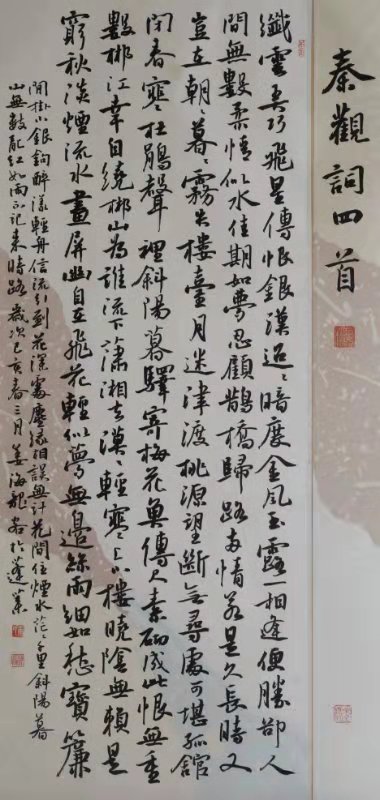 秦觀詞四首
纖雲弄巧飛星傳恨銀漢迢〻暗度金風玉露一相逢便勝卻人
間無數柔情似水佳期如夢忍顧鵲橋歸路兩情若是久長時又
豈在朝〻暮〻霧失樓臺月迷津渡桃源望斷無尋處可堪孤館
閉春寒杜鵑聲裡斜陽暮驛寄梅花魚傳尺素砌成此恨無重
數郴江幸自繞郴山為誰流下瀟湘去漠〻輕寒上小樓曉陰無賴是
窮秋淡煙流水畫屏幽自在飛花輕似夢無邊絲雨細如愁寶簾
閒掛小銀鉤醉漾輕舟信流引到花深處塵緣相誤無計花間住煙水茫〻千里斜陽暮
山無數亂紅如雨不記來時路歲次己亥春三月姜海於蓬萊